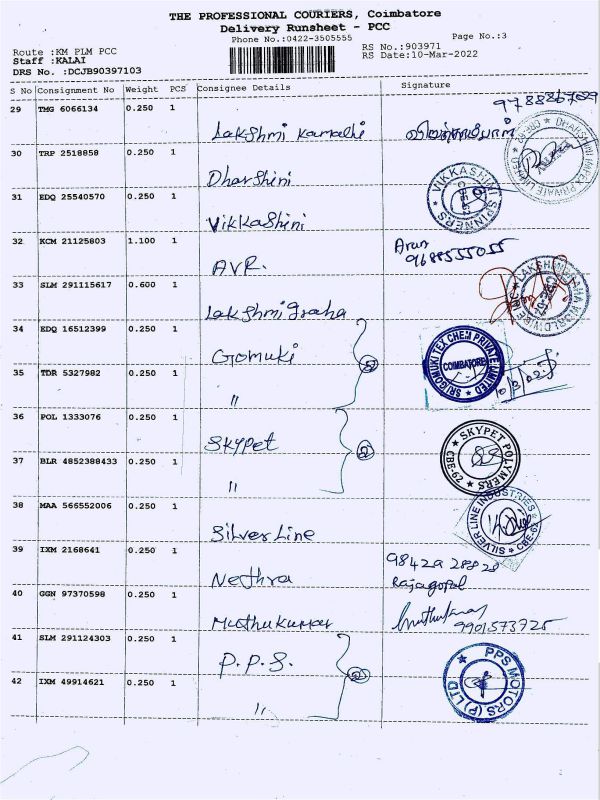 THE PROFESSIONAL COURIERS, Coimbatore
Delivery Runsheet - PCC
Phone No.:0422-3505555
Page No.:3
Route :KM PLM PCC
RS No.:903971
Staff :KALAI
RS Date:10-Mar-2022
DRS No. :DCJB90397103
S No Consignment No Weight PCS Consignee Details Signature
29 TMG 6066134 0.250 1
Lakshmi Kamalhi
30 TRP 2518858 0.250 1
Dharshini
31 EDQ 25540570 0.250 1
Vikkashini
VIKKASHINI SPINNERS
32 KCM 21125803 1.100 1
AVR.
Arun
9688555055
33 SLM 291115617 0.600 1
Lakshmi graha
34 EDQ 16512399 0.250 1
Gomuki
SRI GOMUKI TEX CHEM PRIVATE LIMITED
COIMBATORE
35 TDR 5327982 0.250 1
"
36 POL 1333076 0.250 1
Skypet
SKYPET POLYMERS
CBE-62
37 BLR 4852388433 0.250 1
"
38 MAA 566552006 0.250 1
Silver Line
SILVER LINE INDUSTRIES
CBE-62
39 IXM 2168641 0.250 1
Nethra
Rajagopal
40 GGN 97370598 0.250 1
Muthukumar
9901573725
41 SLM 291124303 0.250 1
P.P.S.
PPS MOTORS (P) LTD
42 IXM 49914621 0.250 1
"